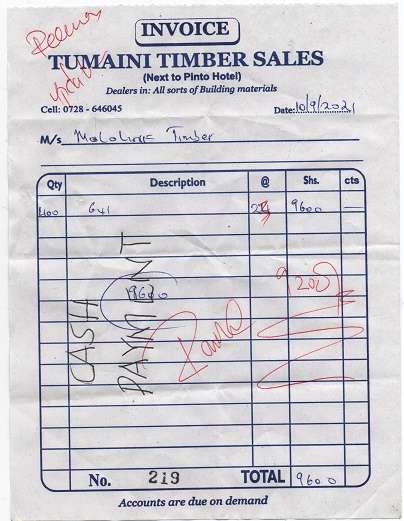 INVOICE
TUMAINI TIMBER SALES
(Next to Pinto Hotel)
Dealers in: All sorts of Building materials
Cell: 0728 - 646045 Date: 10/9/2021
M/s Timber
Qty Description @ Shs. cts
400 6x1 24 9600 —
9600
9200
CASH PAYMENT
Paid
No. 219 TOTAL 9600
Accounts are due on demand